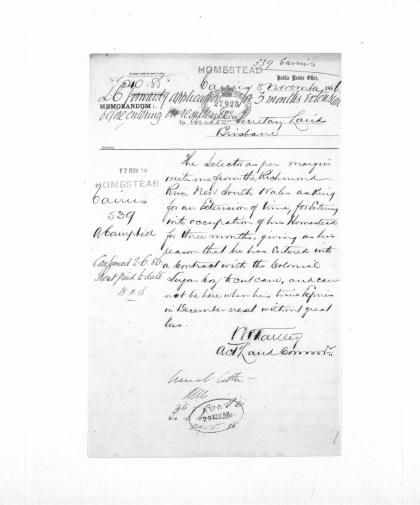 539 Cairns
HOMESTEAD
Public Lands Office,
Cairns 8 November 1886
MEMORANDUM:
forwards application for 3 months extension
before entering on residence
27923
To Under Secretary Lands
Brisbane
17 NOV. 86
HOMESTEAD
Cairns
539
A Campbell
Confirmed 2.6.86
Rent paid to date
The Selector as per margin
writes me from the Richmond
River New South Wales asking
for an Extension of time, for Entering
into occupation of his Homestead
for three months, giving as his
reason that he has Entered into
a Contract with the Colonial
Sugar Coy to cut cane, and can
not be here when his time Expires
in December next without great
loss.
Act Land Commr
Usual Letter